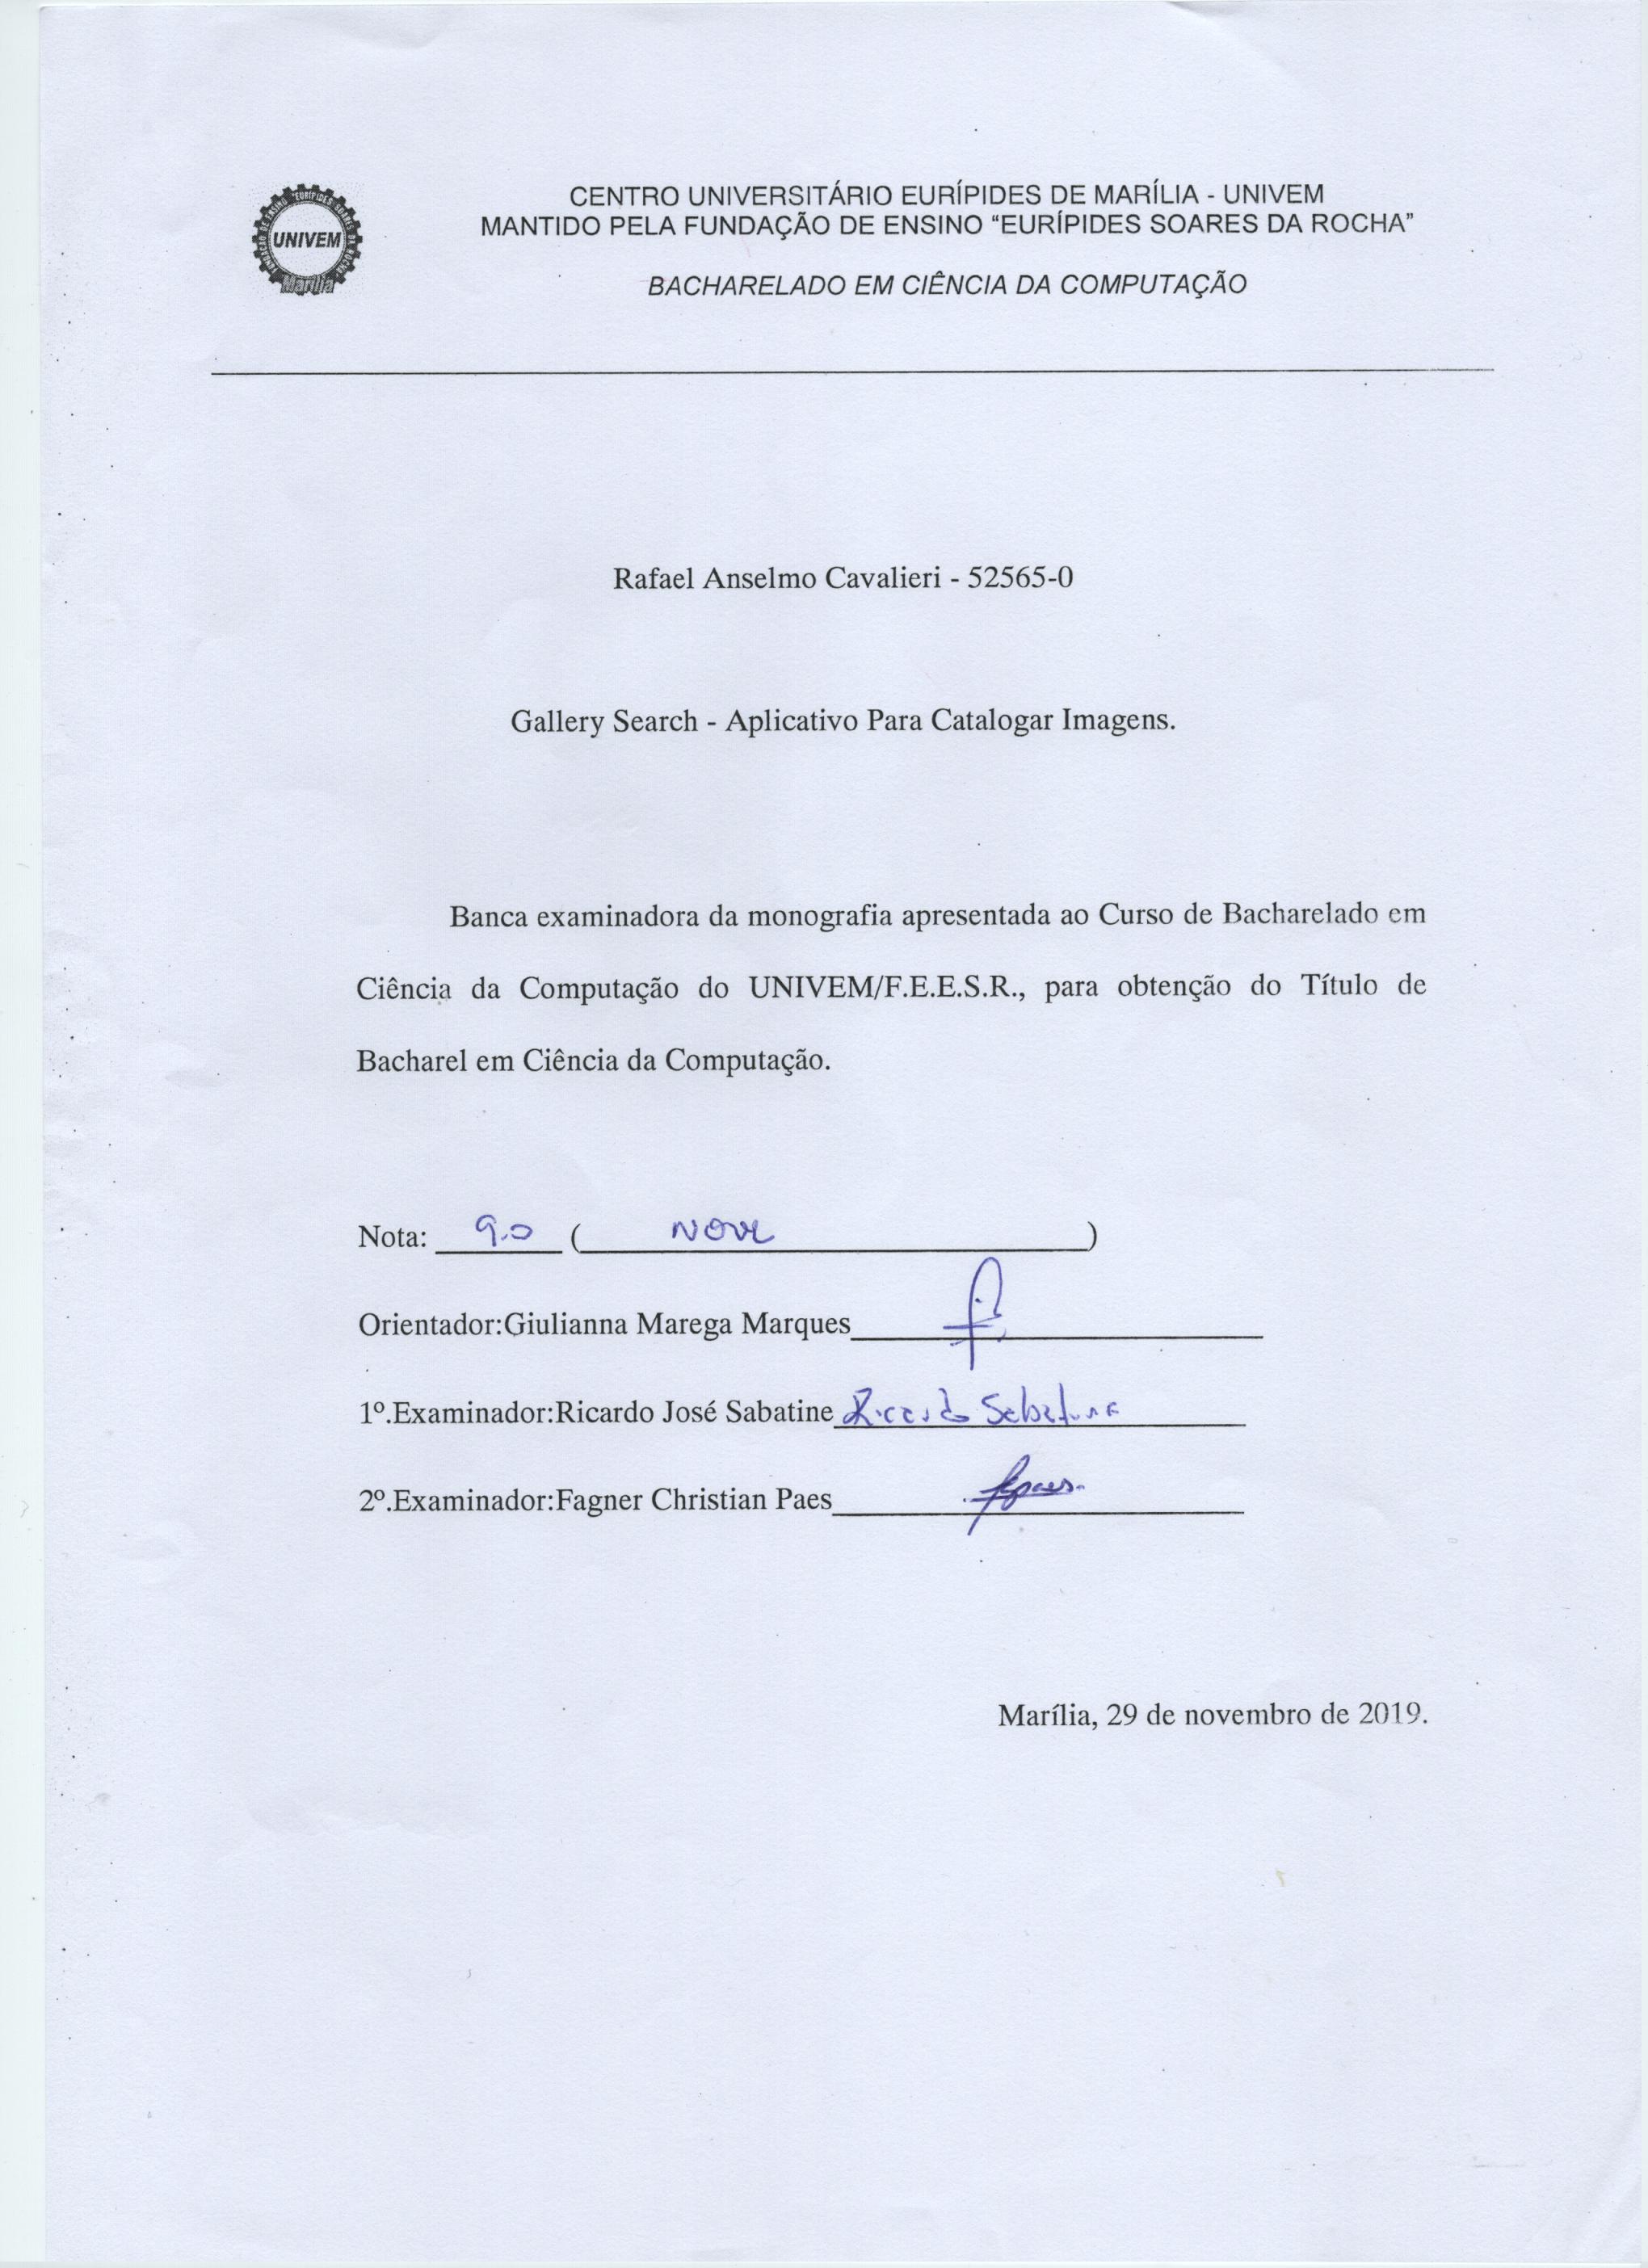 FUNDAÇÃO DE ENSINO "EURÍPIDES SOARES DA ROCHA"
UNIVEM
Marília
CENTRO UNIVERSITÁRIO EURÍPIDES DE MARÍLIA - UNIVEM
MANTIDO PELA FUNDAÇÃO DE ENSINO “EURÍPIDES SOARES DA ROCHA”
BACHARELADO EM CIÊNCIA DA COMPUTAÇÃO
Rafael Anselmo Cavalieri - 52565-0
Gallery Search - Aplicativo Para Catalogar Imagens.
Banca examinadora da monografia apresentada ao Curso de Bacharelado em
Ciência da Computação do UNIVEM/F.E.E.S.R., para obtenção do Título de
Bacharel em Ciência da Computação.
Nota: 9.0 ( NOVE )
Orientador:Giulianna Marega Marques
1º.Examinador:Ricardo José Sabatine Ricardo Sabatine
2º.Examinador:Fagner Christian Paes fpaes.
Marília, 29 de novembro de 2019.